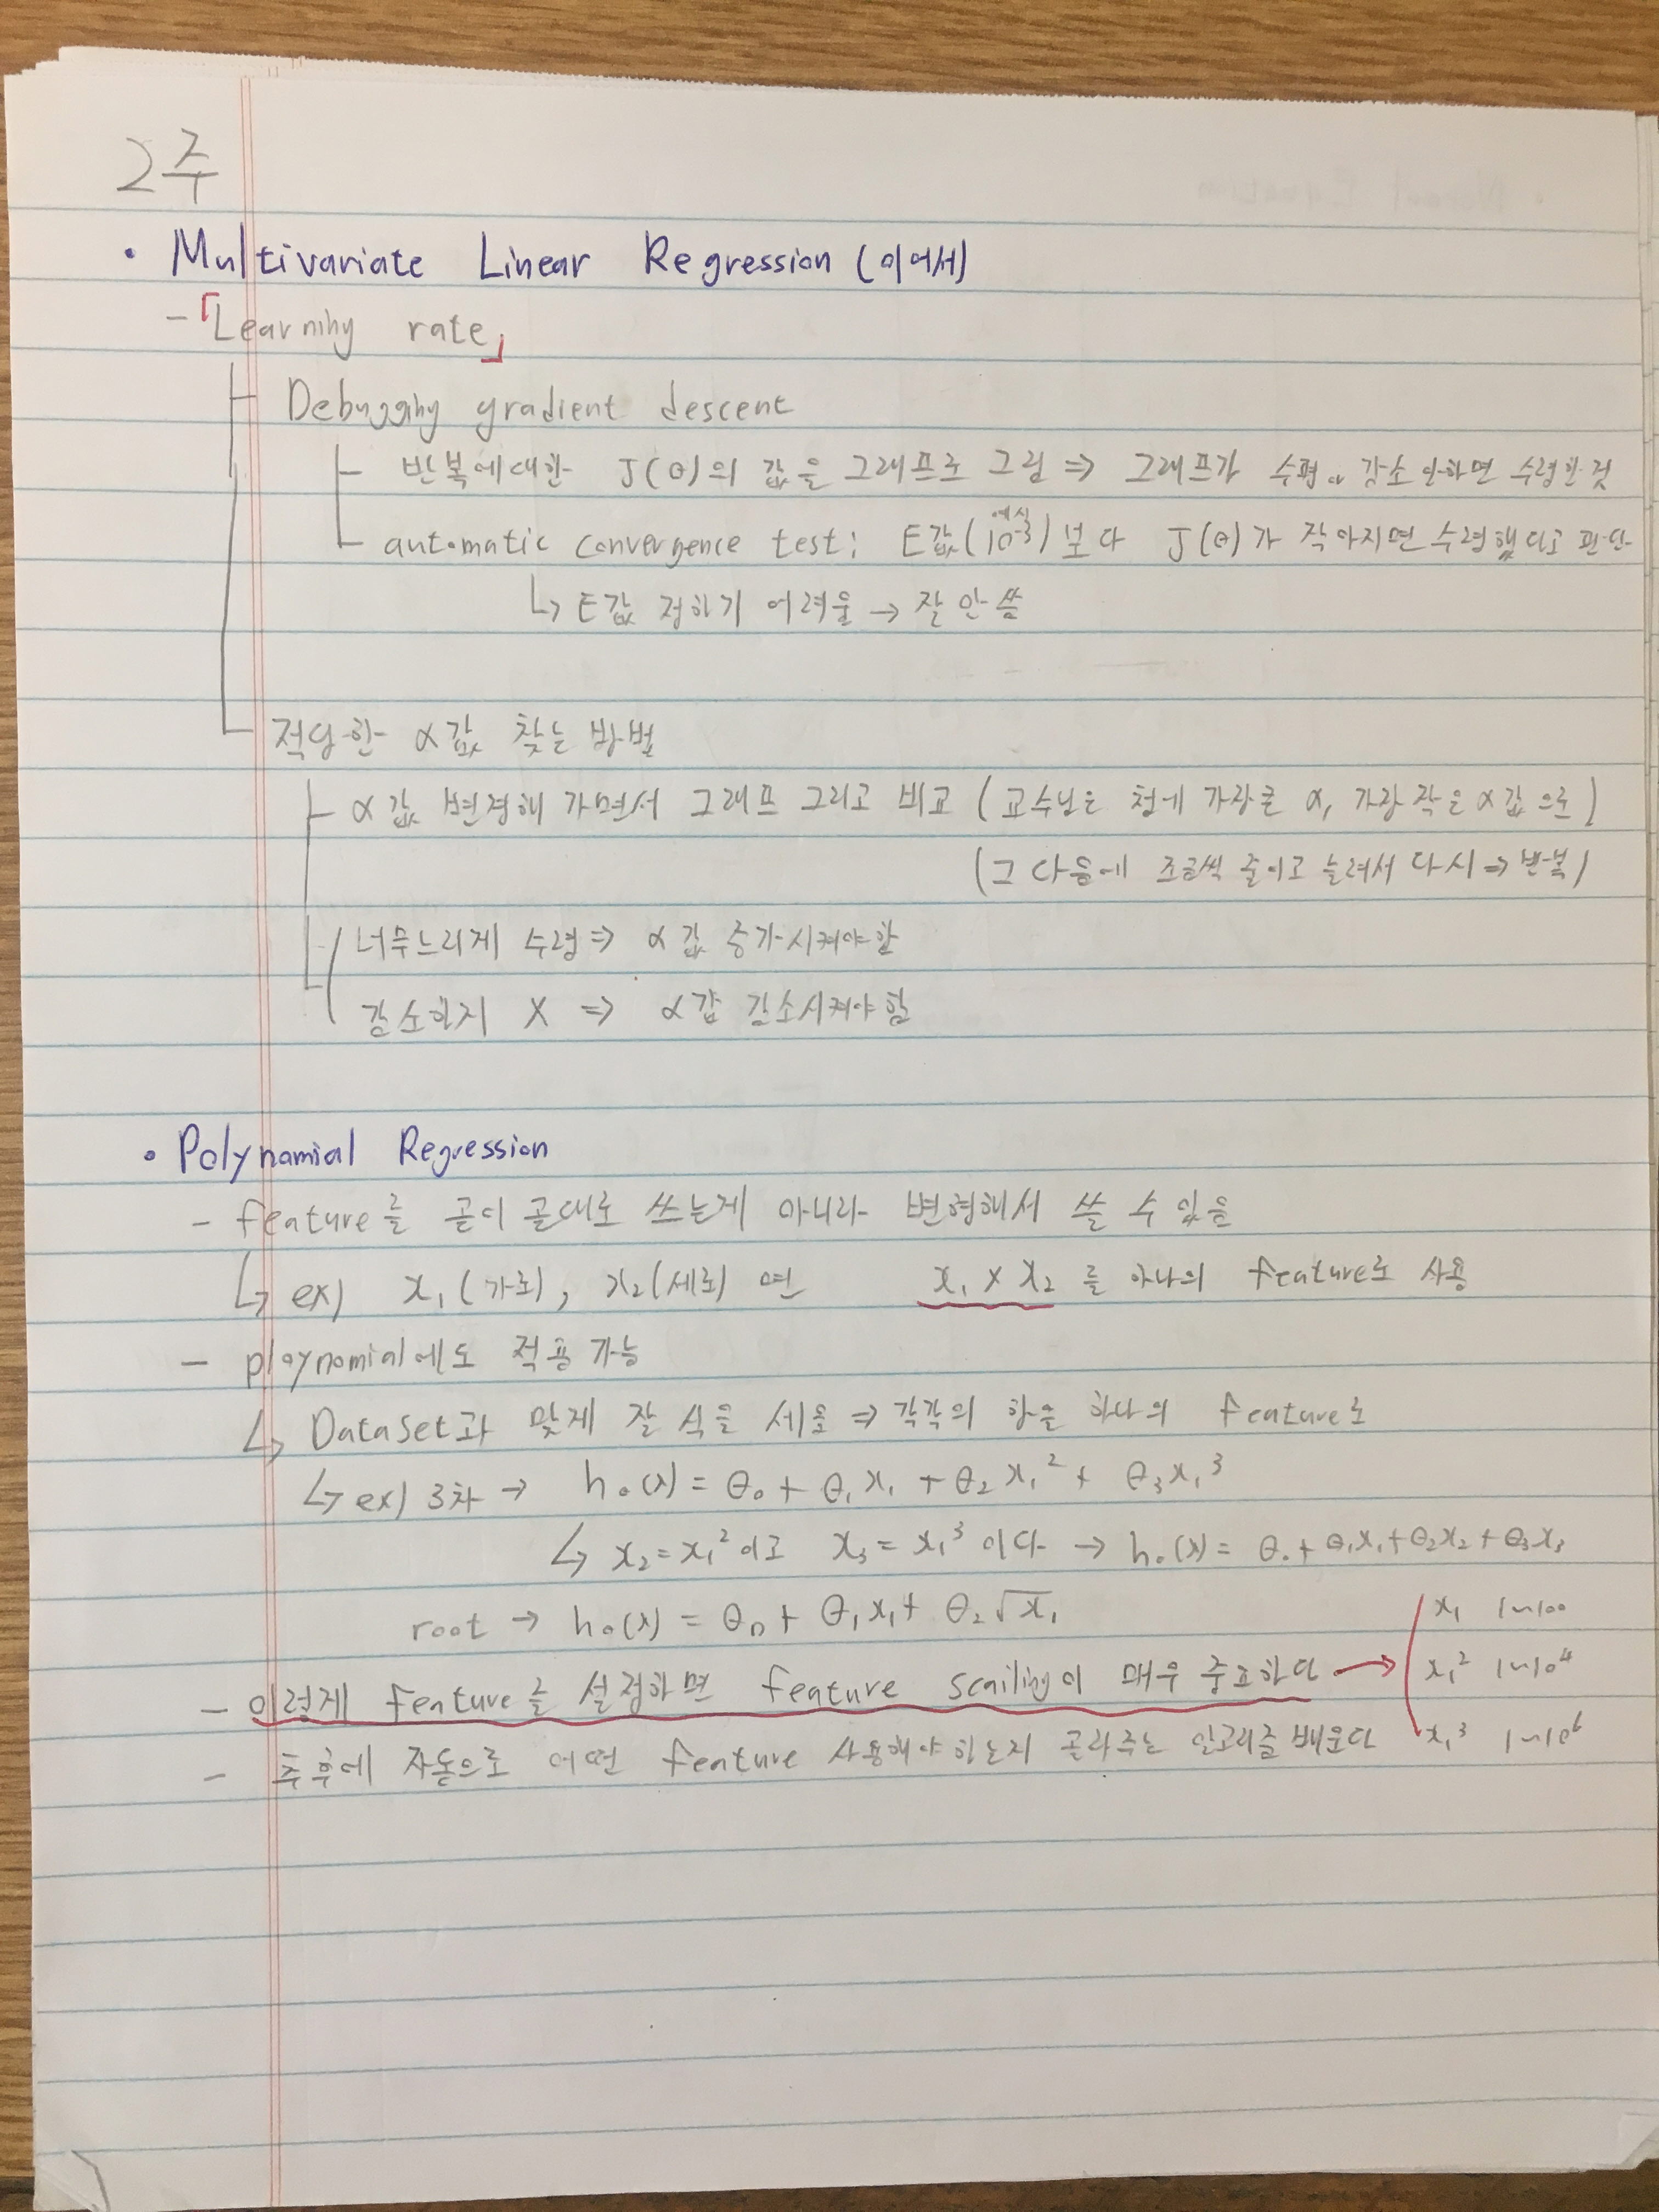 2주
• Multivariate Linear Regression (이어서)
- 「Learning rate」
Debugging gradient descent
반복에대한 J(θ)의 값을 그래프로 그림 ⇒ 그래프가 수평 감소 안하면 수렴한것
예시
automatic convergence test: E값(10⁻³)보다 J(θ)가 작아지면 수렴했다고 판단
↳ E값 정하기 어려움 → 잘 안 씀
적당한 α값 찾는 방법
α값 변경해 가면서 그래프 그리고 비교 (교수님은 첨에 가장큰 α, 가장 작은 α값으로)
(그 다음에 조금씩 줄이고 늘려서 다시 ⇒ 반복)
너무느리게 수렴 ⇒ α값 증가시켜야함
감소하지 X ⇒ α값 감소시켜야함
• Polynamial Regression
- feature를 곧이 곧대로 쓰는게 아니라 변형해서 쓸 수 있음
↳ ex) x₁(가로), x₂(세로) 면 x₁ × x₂ 를 하나의 feature로 사용
- ploynomial에도 적용 가능
↳ DataSet과 맞게 잘 식을 세움 ⇒ 각각의 항을 하나의 feature로
↳ ex) 3차 → h₀(x) = θ₀ + θ₁x₁ + θ₂x₁² + θ₃x₁³
↳ x₂=x₁² 이고 x₃=x₁³ 이다 → h₀(x) = θ₀ + θ₁x₁ + θ₂x₂ + θ₃x₃
root → h₀(x) = θ₀ + θ₁x₁ + θ₂√x₁
x₁ 1~100
- 이렇게 feature를 설정하면 feature scailing이 매우 중요하다 → x₁² 1~10⁴
x₁³ 1~10⁶
- 추후에 자동으로 어떤 feature 사용해야 하는지 골라주는 알고리즘 배운다